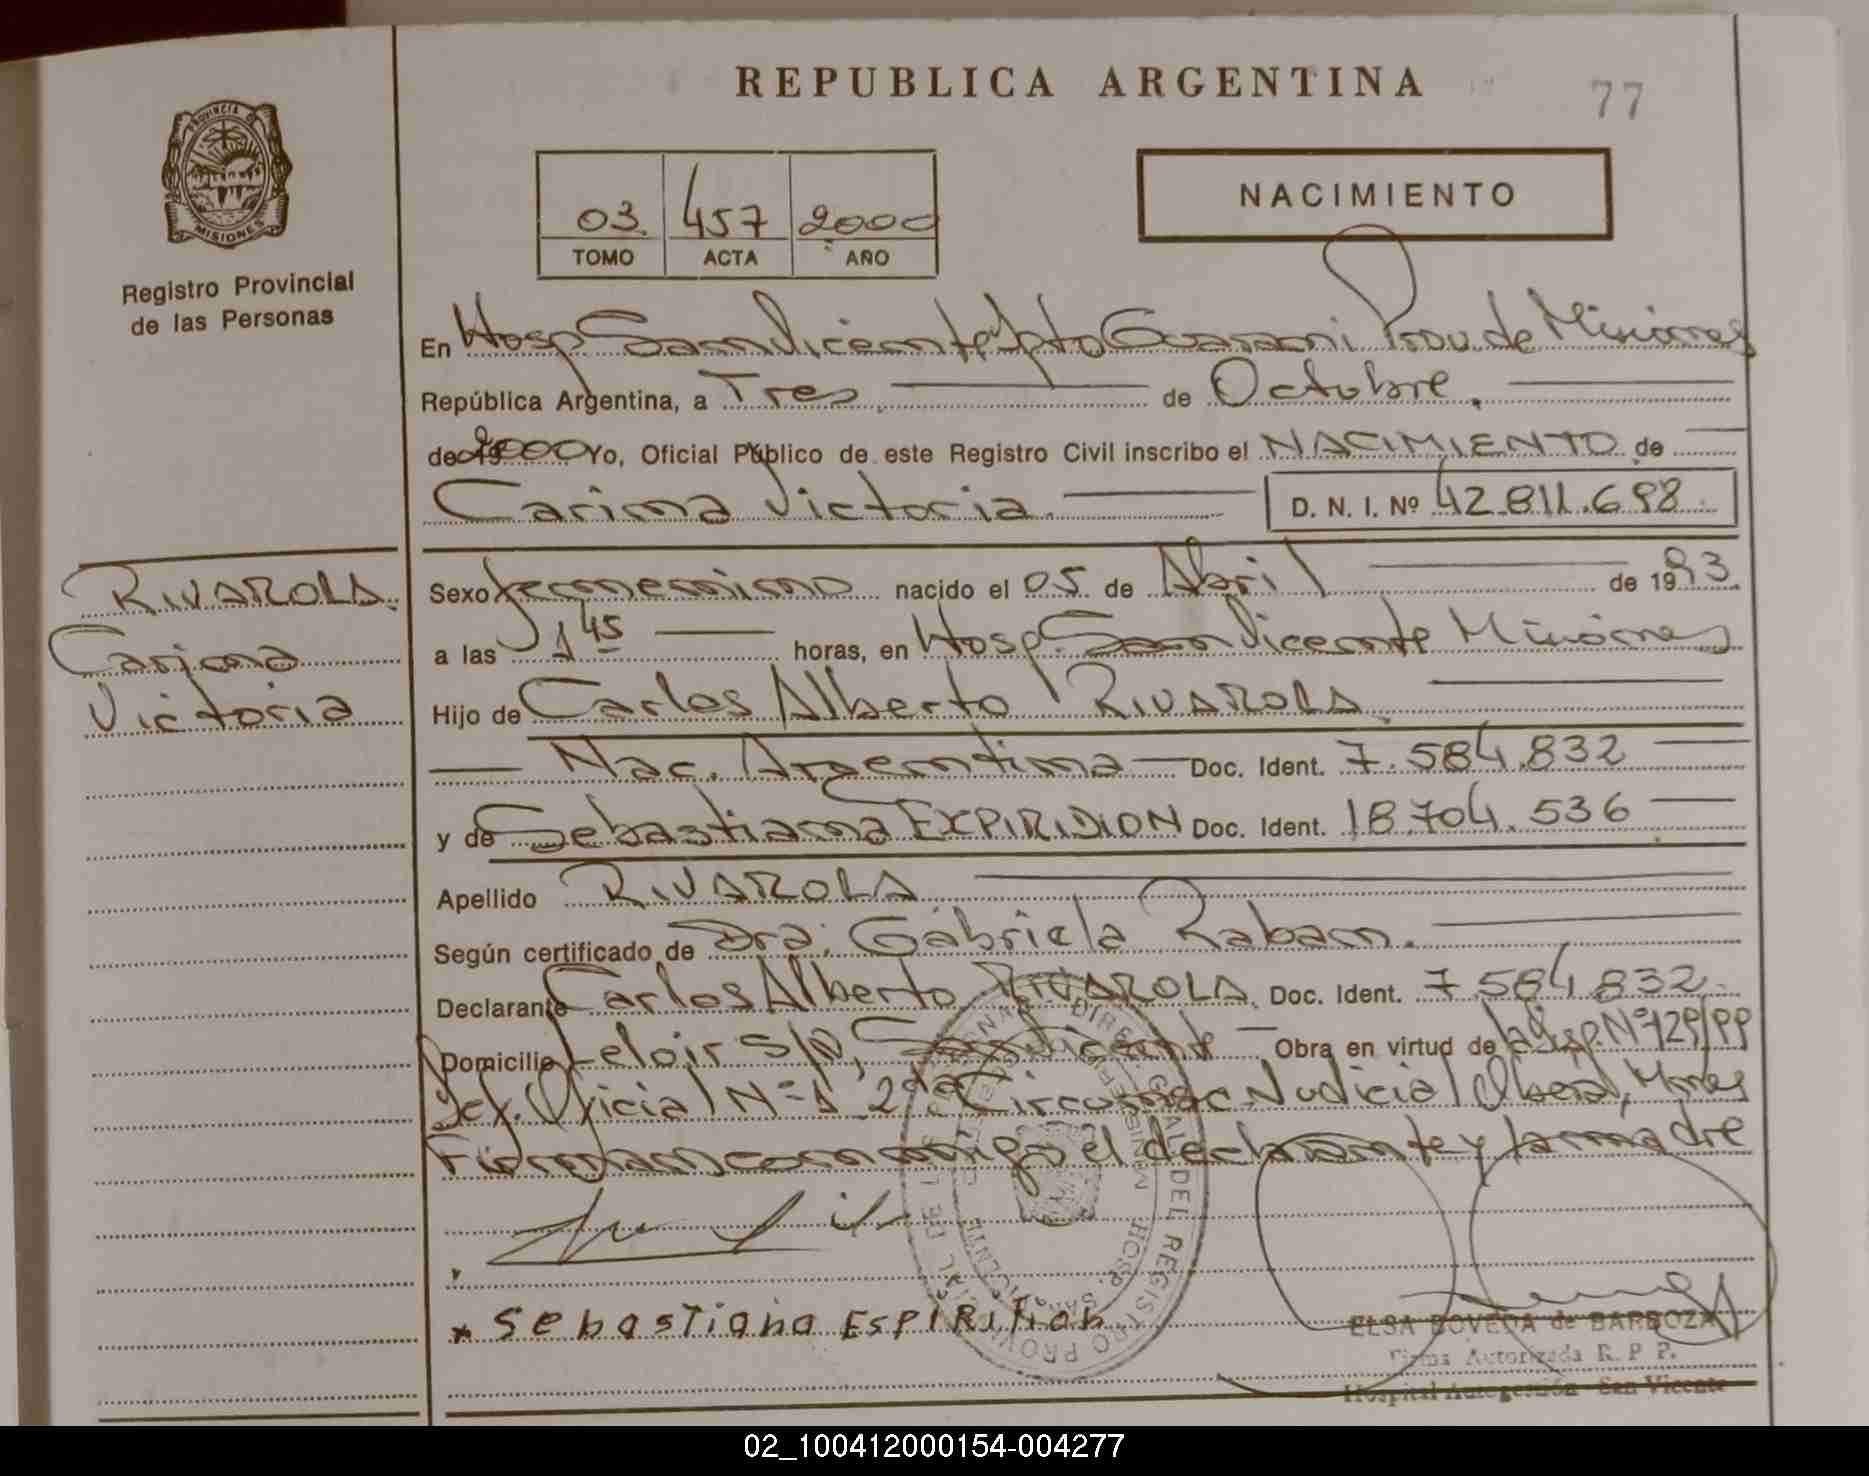 REPUBLICA ARGENTINA
77
PROVINCIA DE MISIONES
Registro Provincial
de las Personas
03 457 2000
TOMO ACTA AÑO
NACIMIENTO
En Hosp San Vicente Dpto Guarani Prov. de Misiones
República Argentina, a Tres de Octubre.
de 2000 Yo, Oficial Público de este Registro Civil inscribo el NACIMIENTO de
Carina Victoria D. N. I. Nº 42.811.698
RIVAROLA
Carina
Victoria
Sexo femenino nacido el 05 de Abril de 1993
a las 1 45 horas, en Hosp. San Vicente Misiones
Hijo de Carlos Alberto RIVAROLA
Nac. Argentina Doc. Ident. 7.584.832
y de Sebastiana EXPIRIDION Doc. Ident. 18.704.536
Apellido RIVAROLA
Según certificado de Dra. Gabriela Raban.
Declarante Carlos Alberto RIVAROLA Doc. Ident. 7.584.832
Domicilio Leloir S/N, San Vicente Obra en virtud de la Disp. Nº 129/99
Def. Oficial Nº 1 2da Circunsc. Judicial Oberá, Mnes
Firman conmigo el declarante y la madre
* Sebastiana ESPIRITION
ELSA BOVEDA de BARBOZA
Firma Autorizada R. P. P.
Hospital Autogestión San Vicente
02_100412000154-004277